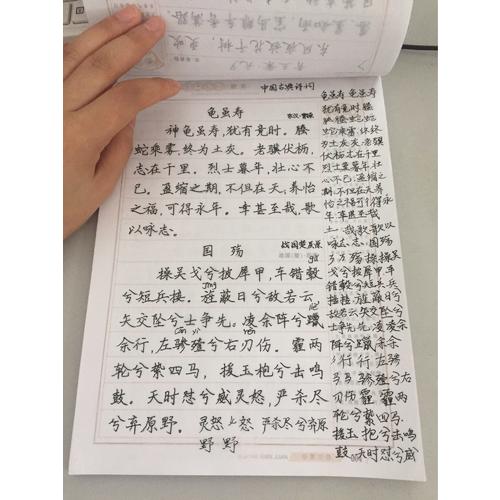 中国古典诗词
龟虽寿
东汉·曹操
神龟虽寿,犹有竟时。腾
蛇乘雾,终为土灰。老骥伏枥,
志在千里。烈士暮年,壮心不
已。盈缩之期,不但在天;养怡
之福,可得永年。幸甚至我,歌
以咏志。
国殇
战国楚 屈原
操吴戈兮披犀甲,车错毂
兮短兵接。旌蔽日兮敌若云,
矢交坠兮士争先。凌余阵兮躐
余行,左骖殪兮右刃伤。霾两
轮兮絷四马,援玉枹兮击鸣
鼓。天时怼兮威灵怒,严杀尽
兮弃原野。灵怒 严杀尽兮弃原
野 野
龟虽寿 龟虽寿
犹有竟时 腾
蛇乘雾,终
为土灰 老骥
伏枥志在千里
烈士暮年壮
心不已,盈缩之
期,不但在天养
怡之福可得永
年,幸甚至我
歌歌以
咏志 国殇
殇 操操吴
戈兮披犀甲,车
错毂兮短兵兵
接接,旌蔽日兮
敌若云矢交坠兮
士争先 凌凌余
阵兮躐余
行行左骖
骖殪兮右
刃伤 霾霾两
轮兮絷四马
援玉枹兮击鸣
鼓,天时怼兮威